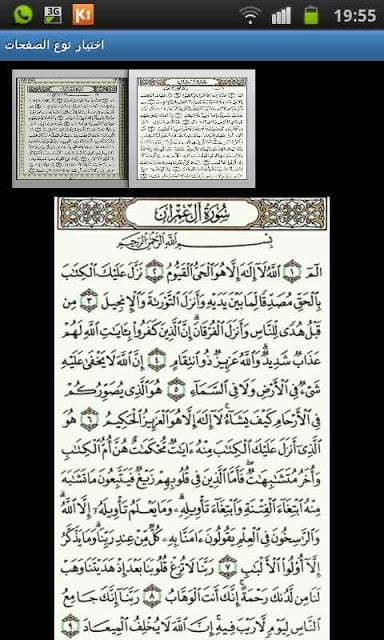 3G
K1
19:55
اختيار نوع الصفحات
سُورَةُ آلِ عِمْرَان
بِسْمِ ٱللَّهِ ٱلرَّحْمَٰنِ ٱلرَّحِيمِ
الٓمٓ ١ ٱللَّهُ لَآ إِلَٰهَ إِلَّا هُوَ ٱلْحَىُّ ٱلْقَيُّومُ ٢ نَزَّلَ عَلَيْكَ ٱلْكِتَٰبَ
بِٱلْحَقِّ مُصَدِّقًا لِّمَا بَيْنَ يَدَيْهِ وَأَنزَلَ ٱلتَّوْرَىٰةَ وَٱلْإِنجِيلَ ٣ مِن
قَبْلُ هُدًى لِّلنَّاسِ وَأَنزَلَ ٱلْفُرْقَانَ ۗ إِنَّ ٱلَّذِينَ كَفَرُوا۟ بِـَٔايَٰتِ ٱللَّهِ لَهُمْ
عَذَابٌ شَدِيدٌ ۗ وَٱللَّهُ عَزِيزٌ ذُو ٱنتِقَامٍ ٤ إِنَّ ٱللَّهَ لَا يَخْفَىٰ عَلَيْهِ
شَىْءٌ فِى ٱلْأَرْضِ وَلَا فِى ٱلسَّمَآءِ ٥ هُوَ ٱلَّذِى يُصَوِّرُكُمْ
فِى ٱلْأَرْحَامِ كَيْفَ يَشَآءُ ۚ لَآ إِلَٰهَ إِلَّا هُوَ ٱلْعَزِيزُ ٱلْحَكِيمُ ٦ هُوَ
ٱلَّذِىٓ أَنزَلَ عَلَيْكَ ٱلْكِتَٰبَ مِنْهُ ءَايَٰتٌ مُّحْكَمَٰتٌ هُنَّ أُمُّ ٱلْكِتَٰبِ
وَأُخَرُ مُتَشَٰبِهَٰتٌ ۖ فَأَمَّا ٱلَّذِينَ فِى قُلُوبِهِمْ زَيْغٌ فَيَتَّبِعُونَ مَا تَشَٰبَهَ
مِنْهُ ٱبْتِغَآءَ ٱلْفِتْنَةِ وَٱبْتِغَآءَ تَأْوِيلِهِۦ ۗ وَمَا يَعْلَمُ تَأْوِيلَهُۥٓ إِلَّا ٱللَّهُ ۗ
وَٱلرَّٰسِخُونَ فِى ٱلْعِلْمِ يَقُولُونَ ءَامَنَّا بِهِۦ كُلٌّ مِّنْ عِندِ رَبِّنَا ۗ وَمَا يَذَّكَّرُ
إِلَّآ أُو۟لُوا۟ ٱلْأَلْبَٰبِ ٧ رَبَّنَا لَا تُزِغْ قُلُوبَنَا بَعْدَ إِذْ هَدَيْتَنَا وَهَبْ
لَنَا مِن لَّدُنكَ رَحْمَةً ۚ إِنَّكَ أَنتَ ٱلْوَهَّابُ ٨ رَبَّنَآ إِنَّكَ جَامِعُ
ٱلنَّاسِ لِيَوْمٍ لَّا رَيْبَ فِيهِ ۚ إِنَّ ٱللَّهَ لَا يُخْلِفُ ٱلْمِيعَادَ ٩